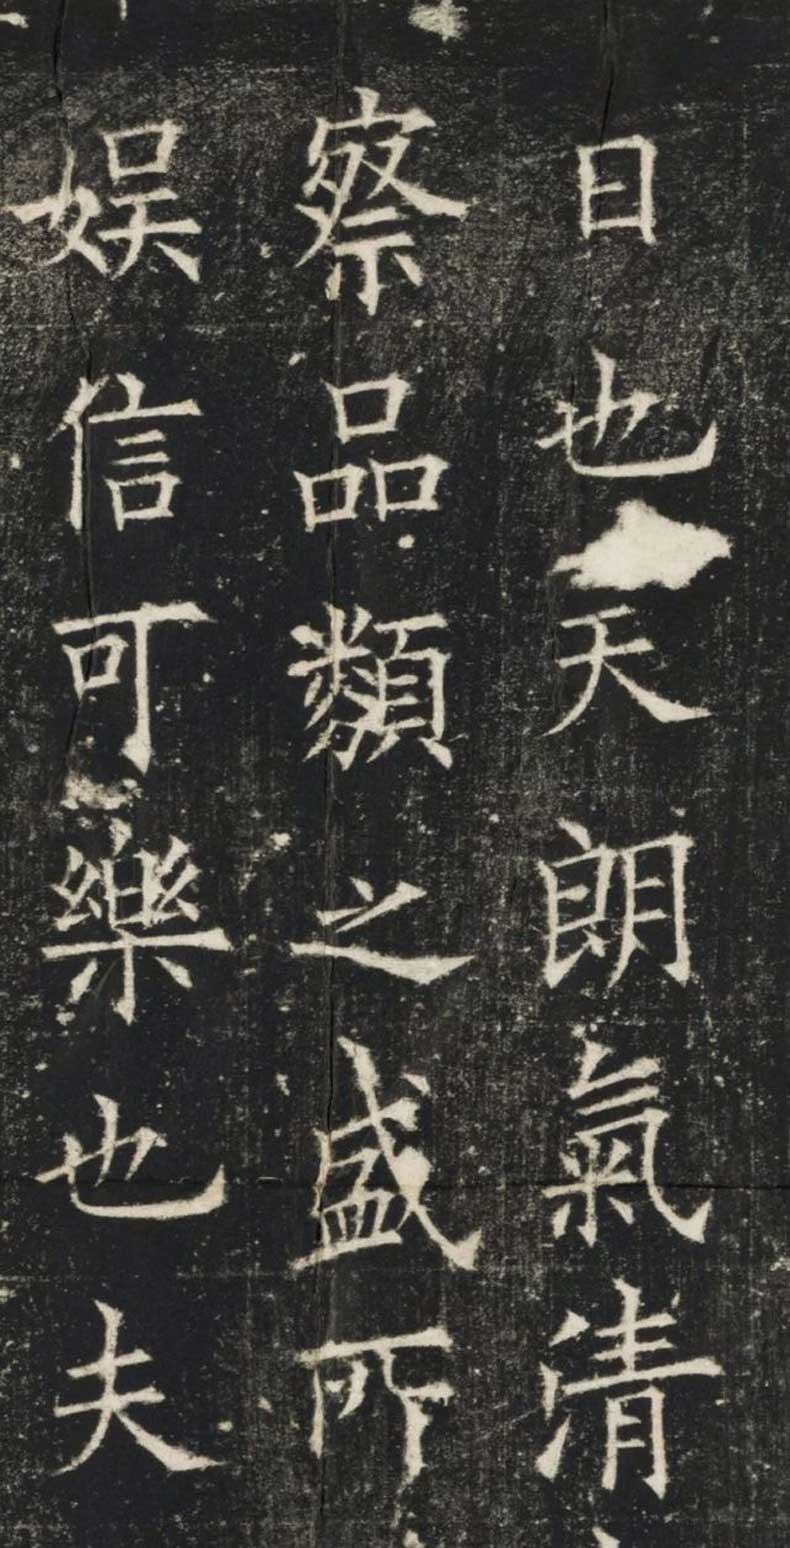 日也天朗氣清
察品類之盛所
娱信可樂也夫